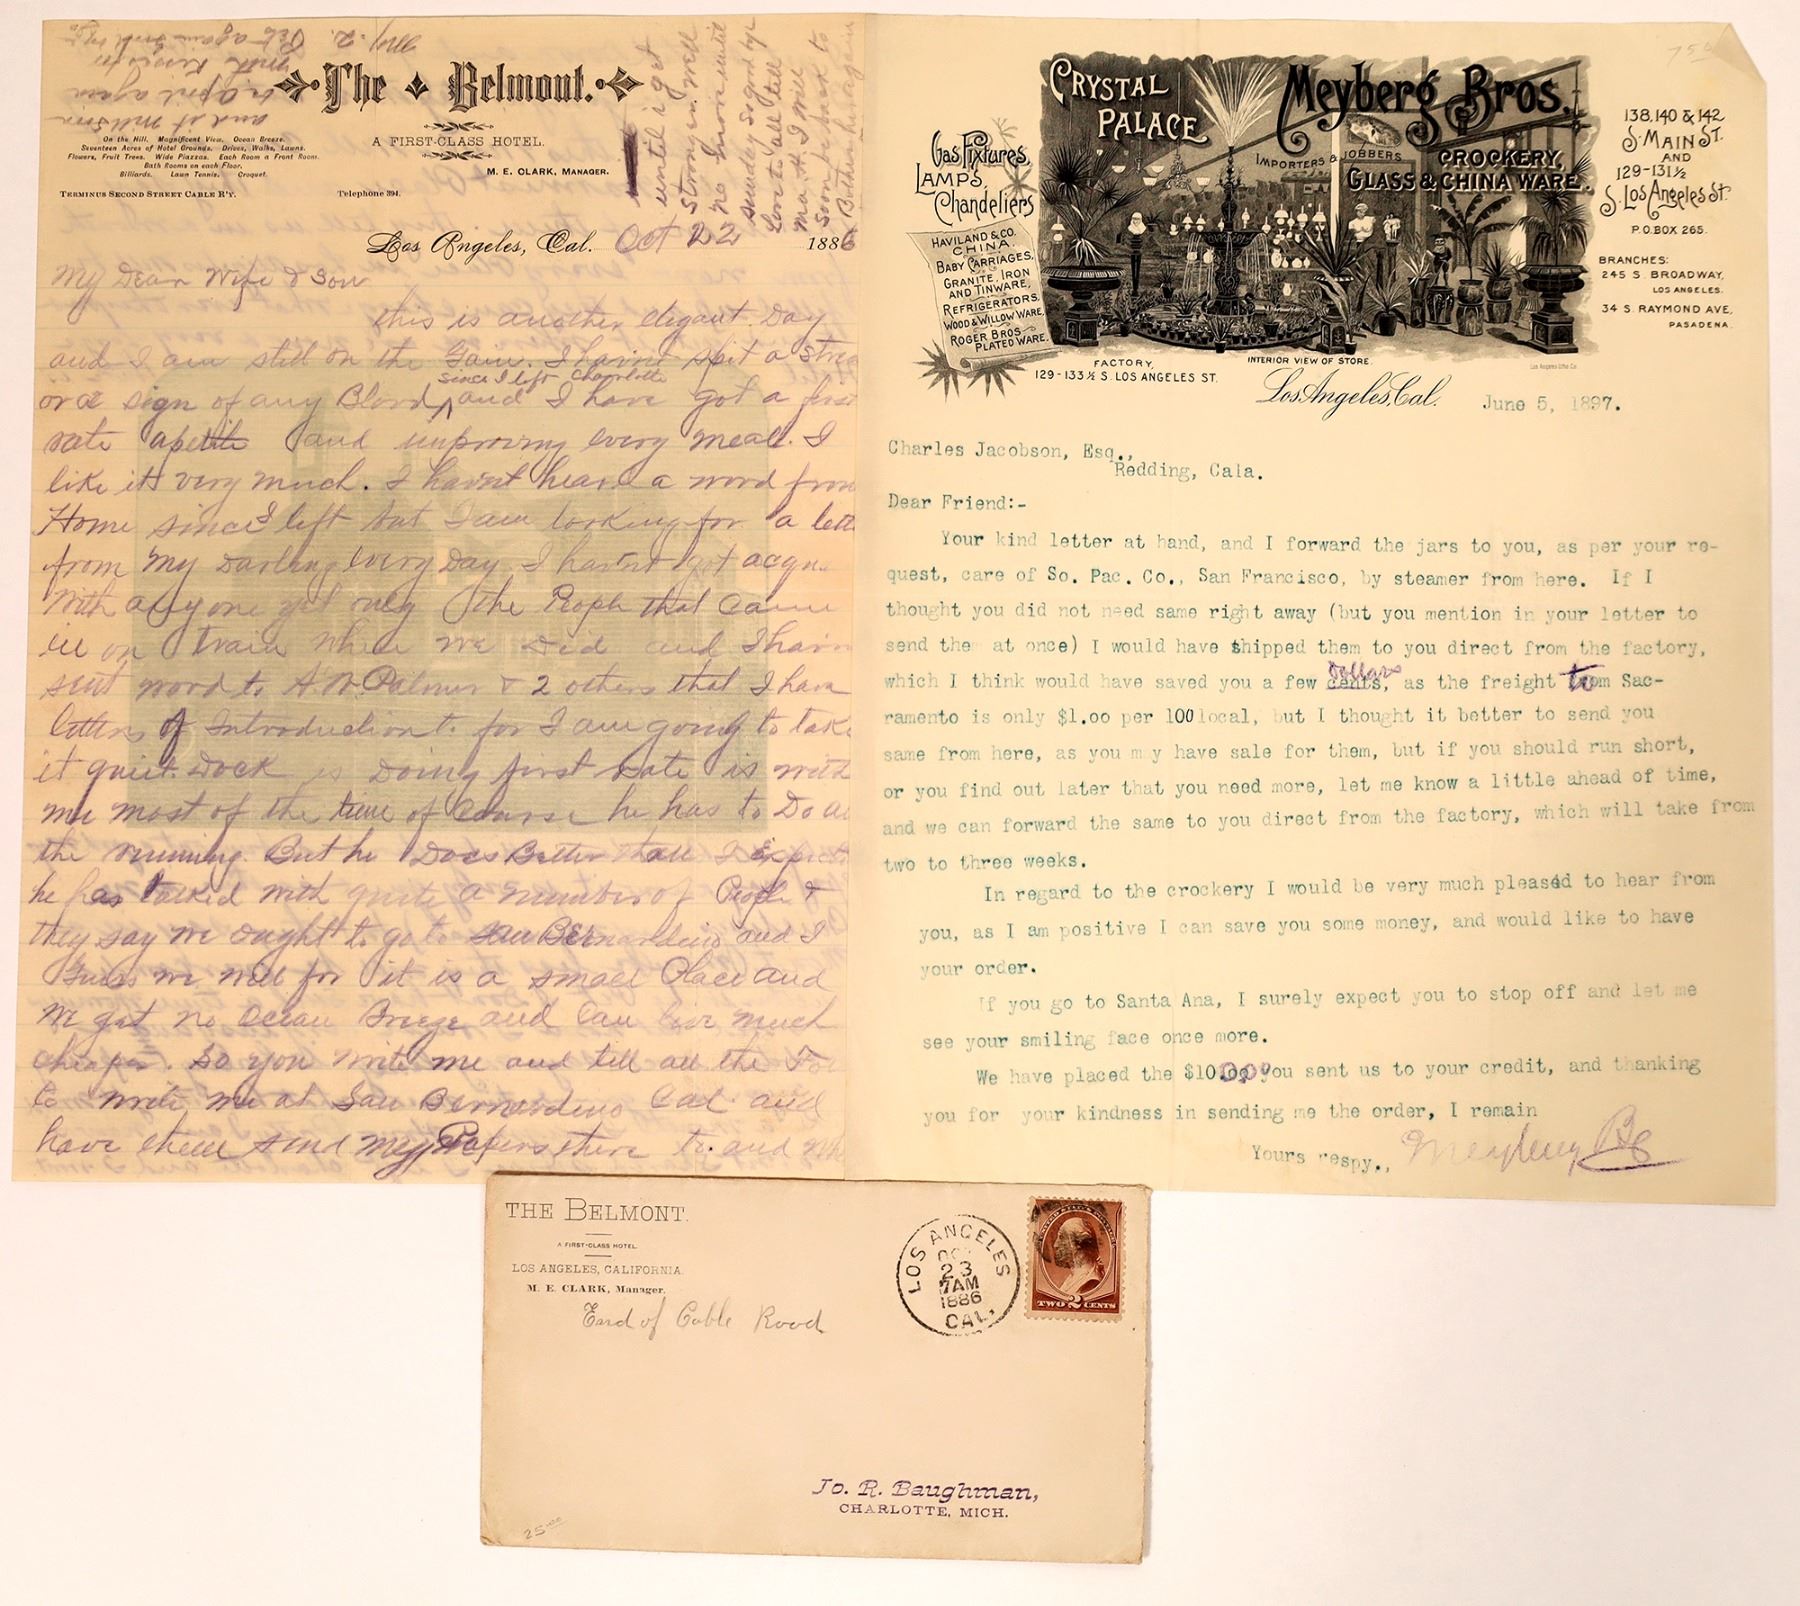 The Belmont.
A FIRST-CLASS HOTEL.
M. E. CLARK, MANAGER.
On the Hill. Magnificent View. Ocean Breeze.
Seventeen Acres of Hotel Grounds. Drives, Walks, Lawns.
Flowers, Fruit Trees. Wide Piazzas. Each Room a Front Room.
Bath Rooms on each Floor.
Billiards. Lawn Tennis. Croquet.
TERMINUS SECOND STREET CABLE R'Y.
Telephone 394.
Los Angeles, Cal. Oct 22 1886
until i get
Stronger. Well
no more until
sunday So good by
Love to all tell
Matt I will
Soon be back to
My Dear Wife & Son
this is another elegant Day
and I am still on the Gain. I havent spit a
since I left Charlotte
or a sign of any Blood, and I have got a first
rate apetite and improving every meal. I
like it very much. I havent heard a word from
Home since I left but I am looking for a lett
from my Darling every Day. I havent got acqu
with anyone yet only the People that came
in on train when we Did and I have
sent word to A. W. Palmer & 2 others that I have
letters of Introduction to. for I am going to take
it quiet. Dock is Doing first rate is with
me most of the time of Course he has to Do all
the running. But he Does Better than I Expect
he has talked with quite a number of People &
they say we ought to go to San Bernardino and I
Guess we will for it is a small Place and
We get no Ocean Breeze and Can live much
cheaper. So you write me and tell all the
to write me at San Bernardino Cal. and
have them send my Papers there to. and
CRYSTAL PALACE
Meyberg Bros.
IMPORTERS & JOBBERS
CROCKERY,
GLASS & CHINA WARE.
Gas Fixtures,
LAMPS,
Chandeliers
HAVILAND & CO.
CHINA.
BABY CARRIAGES,
GRANITE, IRON
AND TINWARE,
REFRIGERATORS,
WOOD & WILLOW WARE,
ROGER BROS
PLATED WARE.
138, 140 & 142
S. MAIN ST.
AND
129-131½
S. Los Angeles St.
P.O. BOX 265.
BRANCHES:
245 S. BROADWAY,
LOS ANGELES.
34 S. RAYMOND AVE,
PASADENA.
FACTORY,
129-133½ S. LOS ANGELES ST.
INTERIOR VIEW OF STORE.
Los Angeles Litho Co.
Los Angeles, Cal. June 5, 1897.
Charles Jacobson, Esq.,
Redding, Cala.
Dear Friend:-
Your kind letter at hand, and I forward the jars to you, as per your re-
quest, care of So. Pac. Co., San Francisco, by steamer from here. If I
thought you did not need same right away (but you mention in your letter to
send them at once) I would have shipped them to you direct from the factory,
dollars
which I think would have saved you a few cents, as the freight to from Sac-
ramento is only $1.00 per 100 local, but I thought it better to send you
same from here, as you may have sale for them, but if you should run short,
or you find out later that you need more, let me know a little ahead of time,
and we can forward the same to you direct from the factory, which will take from
two to three weeks.
In regard to the crockery I would be very much pleased to hear from
you, as I am positive I can save you some money, and would like to have
your order.
If you go to Santa Ana, I surely expect you to stop off and let me
see your smiling face once more.
We have placed the $10.00 you sent us to your credit, and thanking
you for your kindness in sending me the order, I remain
Yours respy., Meyberg Bros
THE BELMONT.
A FIRST-CLASS HOTEL.
LOS ANGELES, CALIFORNIA.
M. E. CLARK, Manager.
End of Cable Road
LOS ANGELES
OCT
23
7AM
1886
CAL.
TWO 2 CENTS
Jo. R. Baughman,
CHARLOTTE, MICH.
25.00